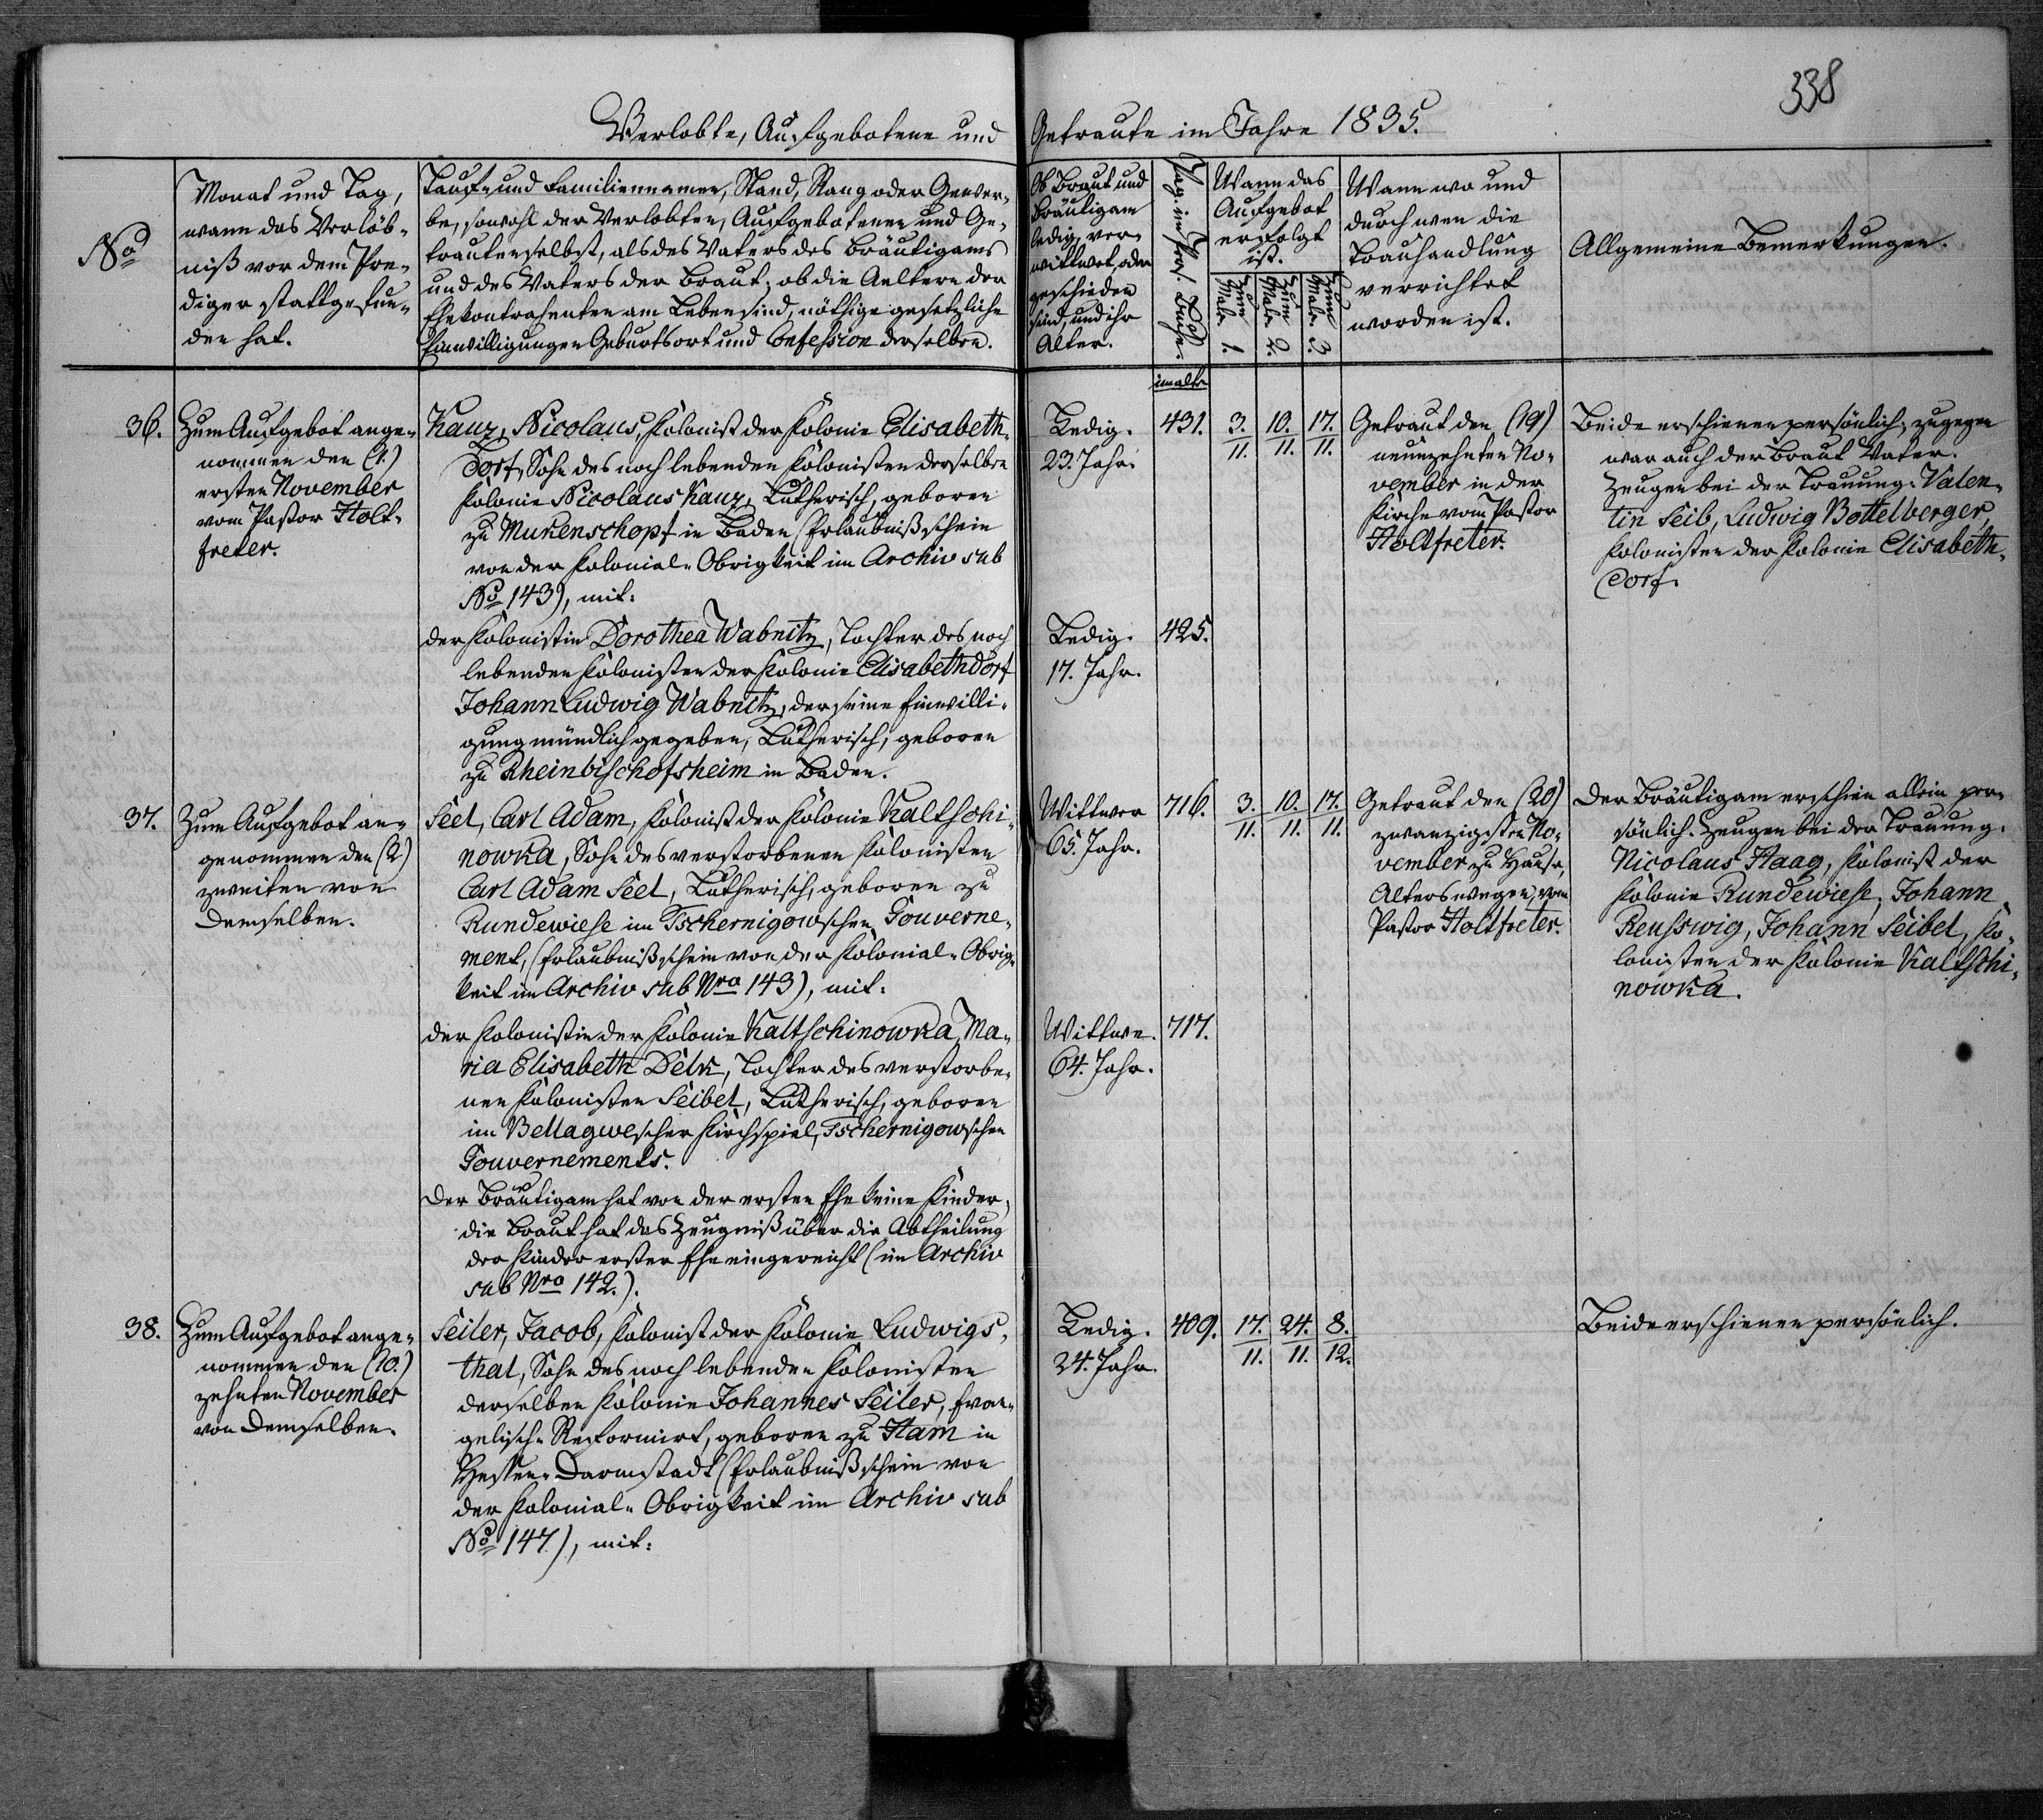 338
Verlobte, Aufgebotene und Getraute im Jahre 1835.
No
Monat und Tag,
wann das Verlöb-
niß vor dem Pre-
diger stattgefun-
den hat.
Tauf- und Familiennamen, Stand, Rang oder Gewer-
be, sowohl der Verlobten, Aufgebotenen und Ge-
trauten selbst, als des Vaters des Bräutigams
und des Vaters der Braut; ob die Aeltern der
Ehekontrahenten am Leben sind, nöthige gesetzliche
Einwilligungen Geburtsort und Confession derselben.
Ob Braut und
Bräutigam
ledig, ver-
wittwet, oder
geschieden
sind, und ihr
Alter.
Pag. im Pers. Buche.
Wann das
Aufgebot
erfolgt
ist.
Zum Male 1.
Zum Male 2.
Zum Male 3.
Wann wo und
durch wen die
Trauhandlung
verrichtet
worden ist.
Allgemeine Bemerkungen.
im alten
36.
Zum Aufgebot ange-
nommen den (1.)
ersten November
vom Pastor Holt-
freter.
Kauz, Nicolaus, Kolonist der Kolonie Elisabeth-
dorf, Sohn des noch lebenden Kolonisten derselben
Kolonie Nicolaus Kauz, Lutherisch, geboren
zu Mukenschopf in Baden (Erlaubnißschein
von der Kolonial-Obrigkeit im Archiv sub
No 143), mit:
der Kolonistin Dorothea Wabnitz, Tochter des noch
lebenden Kolonisten der Kolonie Elisabethdorf
Johann Ludwig Wabnitz, der seine Einwilli-
gung mündlich gegeben, Lutherisch, geboren
zu Rheinbischofsheim in Baden.
Ledig. 431. 3./11. 10./11. 17./11.
23. Jahr.
Ledig. 425.
17. Jahr.
Getraut den (19)
neunzehnten No-
vember in der
Kirche vom Pastor
Holtfreter.
Beide erschienen persönlich; zugegen
war auch der Braut Vater.
Zeugen bei der Trauung. Valen-
tin Seib, Ludwig Bottelberger,
Kolonisten der Kolonie Elisabeth-
dorf.
37.
Zum Aufgebot an-
genommen den (2)
zweiten von
Demselben.
Seel, Carl Adam, Kolonist der Kolonie Kaltschi-
nowka, Sohn des verstorbenen Kolonisten
Carl Adam Seel, Lutherisch, geboren zu
Rundewiese im Tschernigowschen Gouverne-
ment, (Erlaubnißschein von der Kolonial-Obrig-
keit im Archiv sub Nro 143), mit:
der Kolonistin der Kolonie Kaltschinowka, Ma-
ria Elisabeth Delk, Tochter des verstorbe-
nen Kolonisten Seibel, Lutherisch, geboren
im Bellagwescher Kirchspiel, Tschernigowschen
Gouvernements.
Der Bräutigam hat von der ersten Ehe keine Kinder,
die Braut hat das Zeugniß über die Abtheilung
der Kinder erster Ehe eingereicht (im Archiv
sub Nro 142.).
Wittwer 716. 3./11. 10./11. 17./11.
65. Jahr.
Wittwe. 717.
64. Jahr.
Getraut den (20)
zwanzigsten No-
vember zu Hause,
Alters wegen, vom
Pastor Holtfreter.
Der Bräutigam erschien allein per-
sönlich. Zeugen bei der Trauung.
Nicolaus Haag, Kolonist der
Kolonie Rundewiese, Johann
Reusswig, Johann Seibel, Ko-
lonisten der Kolonie Kaltschi-
nowka.
38.
Zum Aufgebot ange-
nommen den (10.)
zehnten November
von Demselben.
Seiler, Jacob, Kolonist der Kolonie Ludwigs-
thal, Sohn des noch lebenden Kolonisten
derselben Kolonie Johannes Seiler, Evan-
gelisch-Reformirt, geboren zu Ham in
Hessen-Darmstadt (Erlaubnißschein von
der Kolonial-Obrigkeit im Archiv sub
No 147), mit:
Ledig. 409. 17./11. 24./11. 8./12.
24. Jahr.
Beide erschienen persönlich.